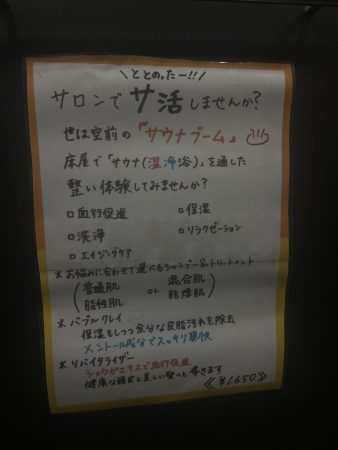 \ととのったー!!/
サロンでサ活しませんか?
世は空前の「サウナブーム」
床屋で「サウナ(温浄浴)」を通した
整い体験してみませんか?
□血行促進 □保湿
□洗浄 □リラクゼーション
□エイジングケア
*お悩みに合わせて選べるシャンプー&トリートメント
(普通肌 or 混合肌
脂性肌 乾燥肌)
*バブルクレイ
保湿もしつつ余分な皮脂汚れを除去
メントール成分でスッキリ爽快
*リバイタライザー
ショウガエキスで血行促進
健康な頭皮と美しい髪へと導きます
≪¥1,650≫